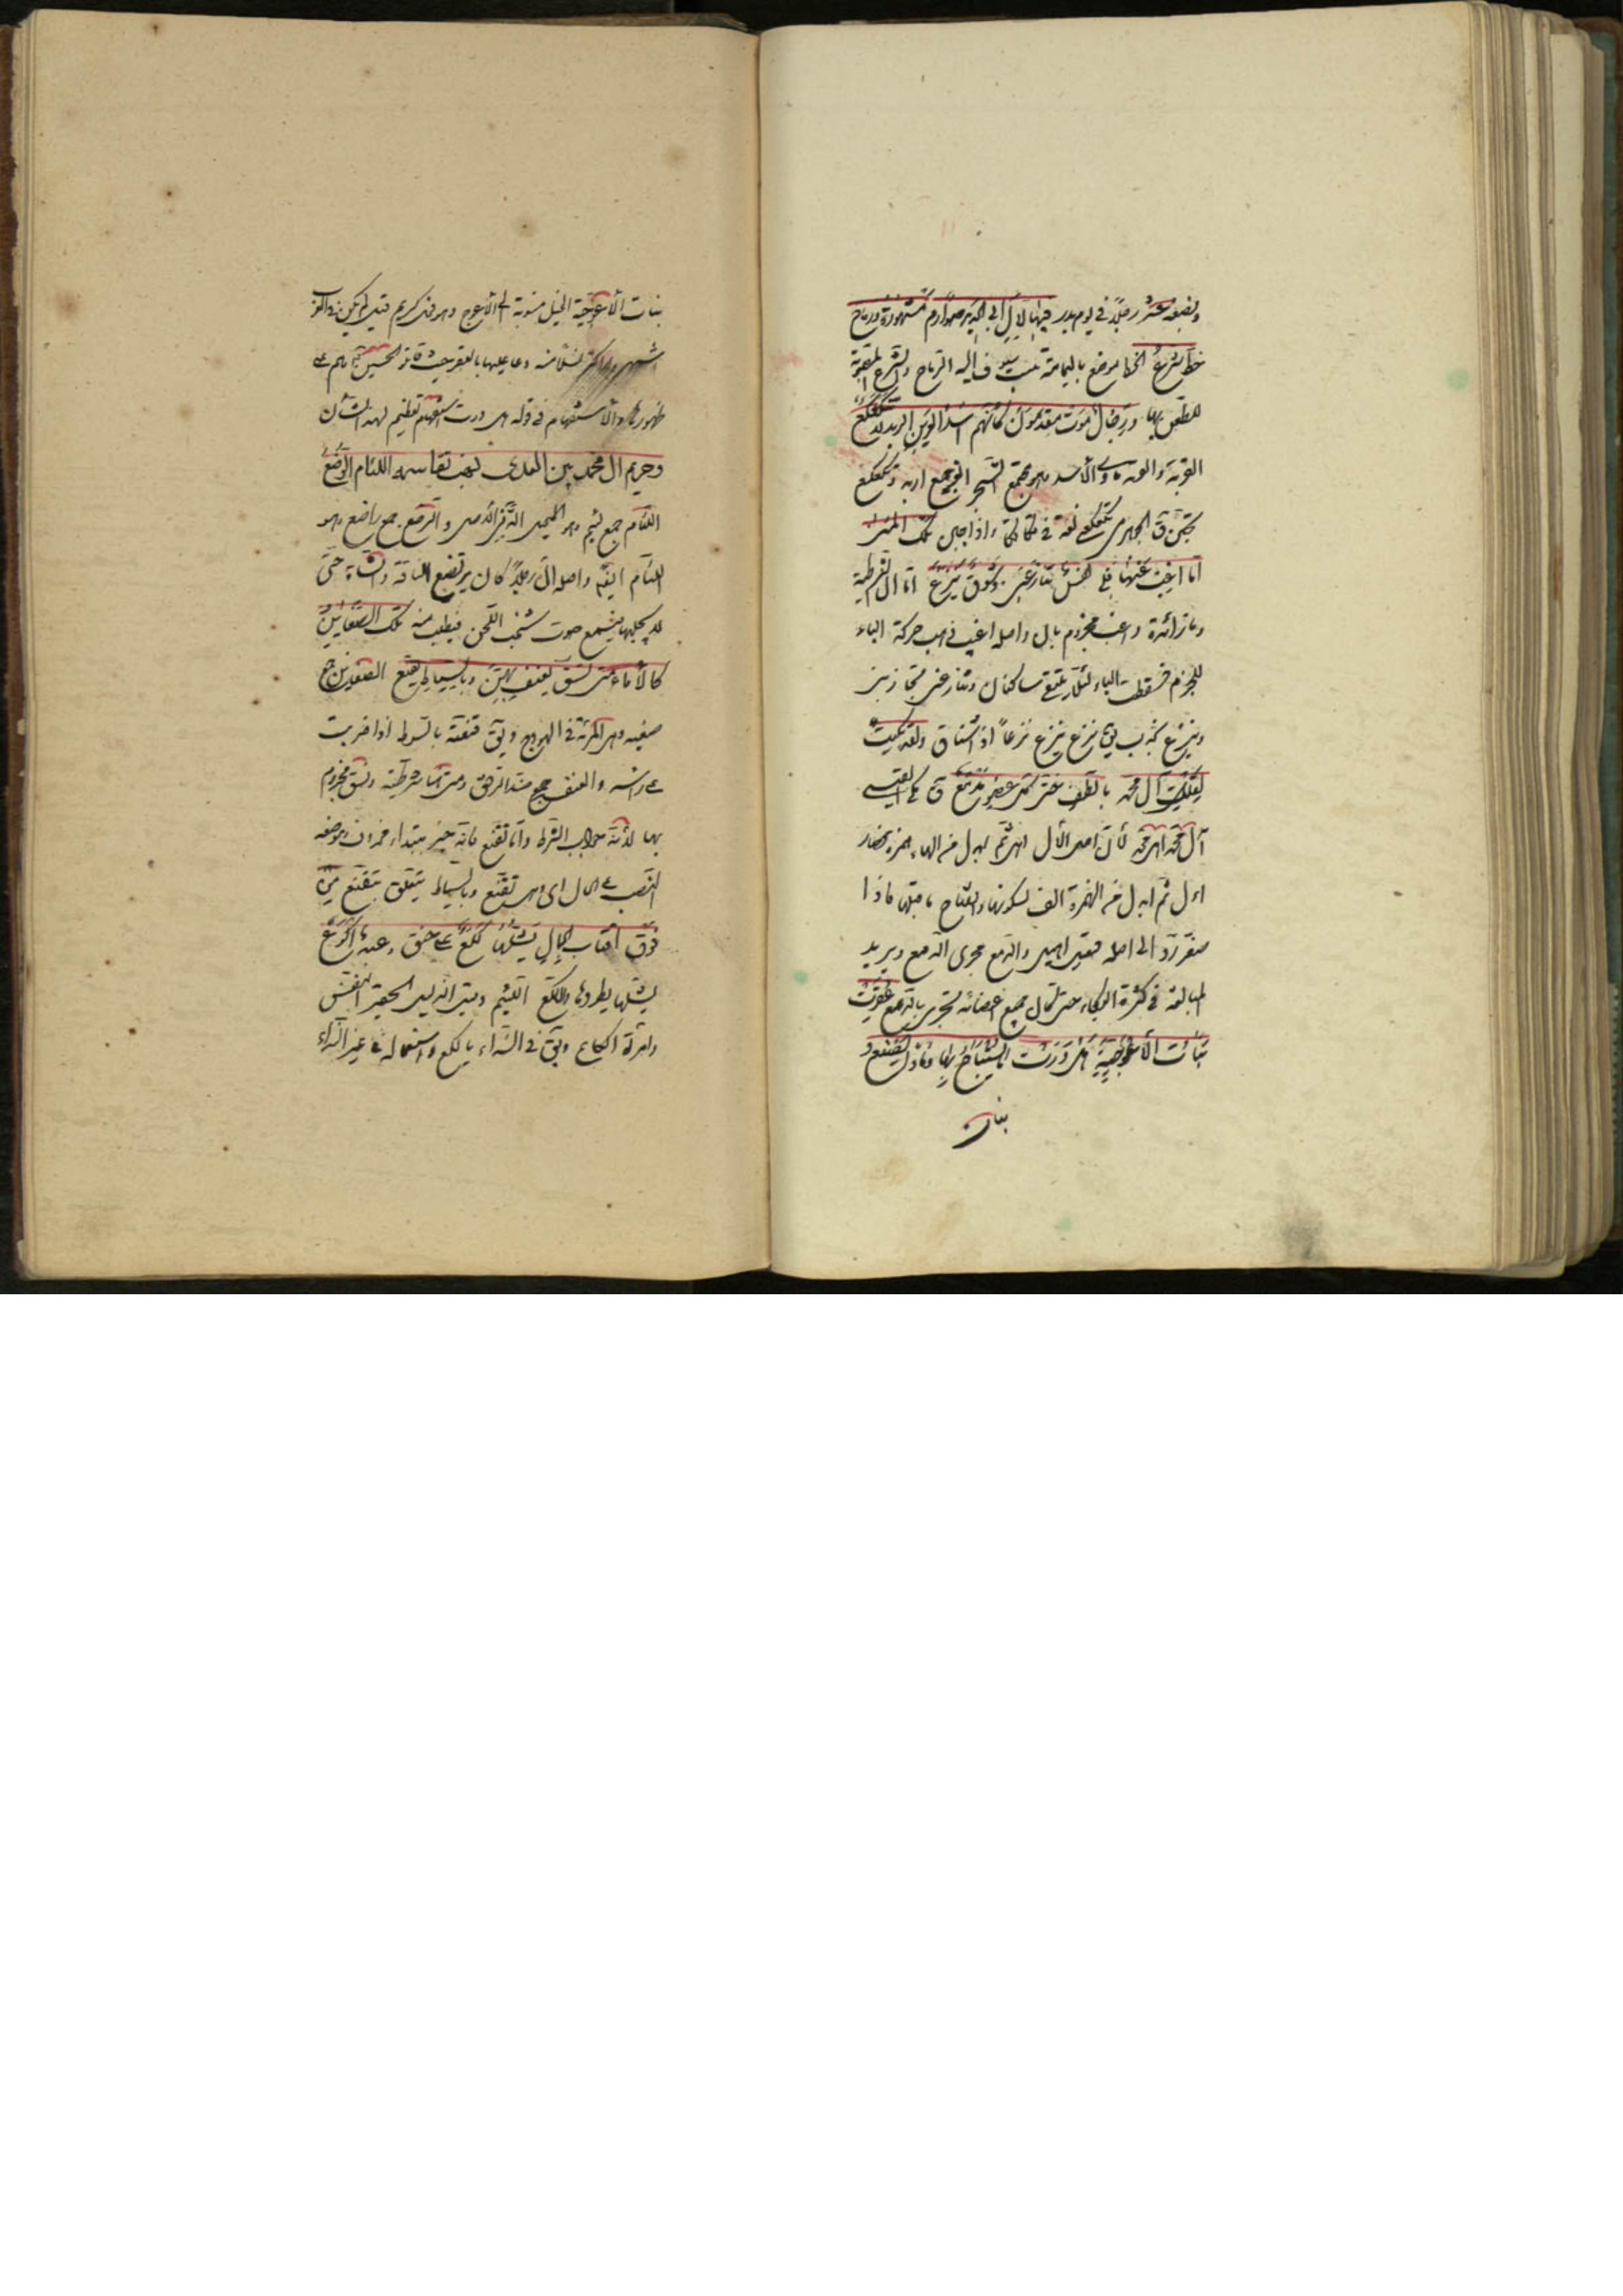 وبضعة عشر رجلاً في يوم بدر فيها لآل ابي الحديد صوارم مشهورة ورماح
خط شرع الخط موضع باليمامة ينسب اليه الرماح والشرع المصوبة
للطعن بها ورجال موت مقدمون كأنهم اسد العرين الربد لا تكعكع
العرين والعرينة مأوى الأسد وهو مجتمع الشجر الربد جمع اربد وتكعكع
تجبن ق الجوهري تكعكع لغة في واذا جبن تلك المنى
اما اغب عنها فلي نفس تنازعني وشوق ينزع اما ان الشرطية
وما زائدة واغب مجزوم بان واصله اغيب ذهبت حركة الباء
للجزم فسقطت الياء لئلا يلتقي ساكنان وتنازعني تجاذبني
وينزع يجذب يق نزع ينزع نزعاً اذا اشتاق ولقد بكيت
لقتلى آل محمد بالطف حتى كل عضو مدمع ق
آل محمد اهل محمد لأن اصل الآل اهل ثم ابدل من الهاء همزة فصار
اءل ثم ابدل من الهمزة الف لسكونها وانفتاح ما قبلها فاذا
صغر رد الى اصله فقيل اهيل والمدمع مجرى الدمع ويريد
المبالغة في كثرة البكاء حتى كان جميع اعضائه تجري بالدمع عقرت
بنات الأعوجية هل درت ما يستباح بها وماذا يصنع
بنات
بنات الأعوجية الخيل منسوبة الى الأعوج وهو فرس كريم قيل لم يكن في العرب
اشهر ولا اكثر نسلا منه دعا عليها بالعقر حيث قاتل الحسين على
ظهورها والاستفهام في قوله هل درت استفهام تعظيم لهذا الشأن
وحريم آل محمد بين العدى نهب تقاسمه اللئام الرضع
اللئام جمع لئيم وهو البخيل الدني الأصل والرضع جمع راضع وهو
اللئام ايضا واصله ان رجلاً كان يرتضع الناقة والشاة حتى
لا يحلبها فيسمع صوت شخب اللبن فيطلب منه تلك الضعاين
كالأماء متى تسق يعنف بهن وبالسياط تقنع الضعاين جمع
ضعينه وهي المرئة في الهودج ويق قنعته بالسوط اذا ضربت
على راسه والعنف ضد الرفق ومتى شرطية وتسق مجزوم
بها لأنه جواب الشرط واما تقنع فانه خبر مبتداء محذوف وموضعه
النصب على الحال اي وهي تقنع وبالسياط يتعلق بتقنع من
فوق اقتاب الجمال يشلها لكع على حنق وعبد اكوع
يشلها يطردها واللكع اللئيم وقيل انه العبد الحقير النفس
وامرأة لكاع ويق في النداء يا لكع واستعماله في غير النداء